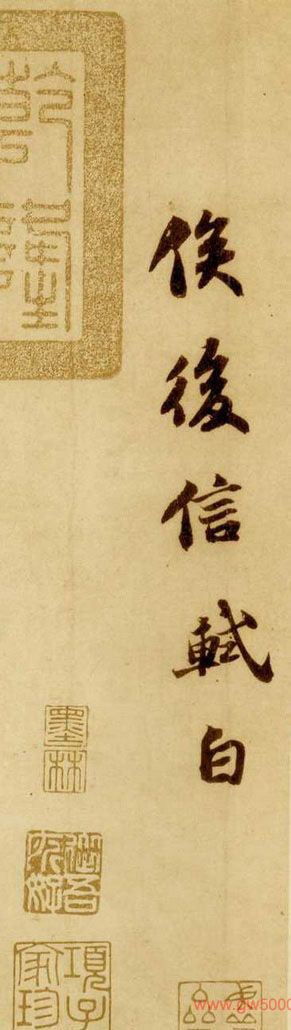 俟後信軾白
乾隆
墨林
項子
家珍
www.gw5000